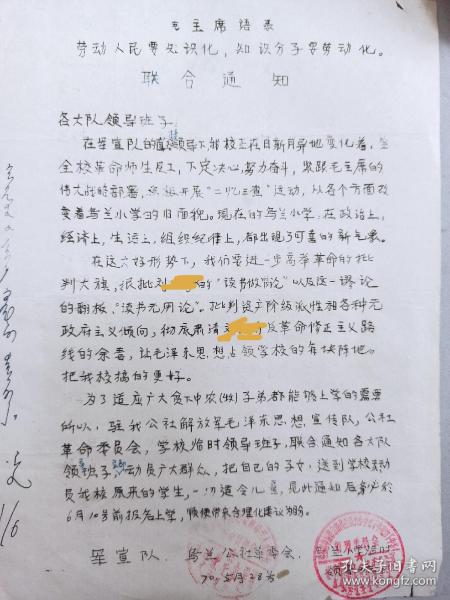 毛主席语录
劳动人民要知识化，知识分子要劳动化。
联合通知
各大队领导班子：
在军宣队的直接领导下，我校正在日新月异地变化着，
全校革命师生员工，下定决心，努力奋斗，紧跟毛主席的
伟大战略部署，积极开展“二忆三查”运动，从各个方面改
变着乌兰小学的旧面貌。现在的乌兰小学，在政治上，
经济上，生活上，组织纪律上，都出现了可喜的新气象。
在这大好形势下，我们要进一步高举革命的批
判大旗，狠批 的“读书做官论”以及这一谬论
的翻板，“读书无用论”。批判资产阶级派性和各种无
政府主义倾向，彻底肃清 反革命修正主义路
线的余毒，让毛泽东思想占领学校的每块阵地。
把我校搞的更好。
为了适应广大贫下中农(牧)子弟都能够上学的需要
所以，驻我公社解放军毛泽东思想宣传队，公社
革命委员会，学校临时领导班子，联合通知各大队
领导班子，动员广大群众，把自己的子女，送到学校
员我校原来的学生，一切适令儿童，见此通知后
6月10号前报名上学，顺便带来合理化建议为盼。
军宣队 乌兰公社革委会 乌兰小学临时
70.5月28号
孔夫子旧书网